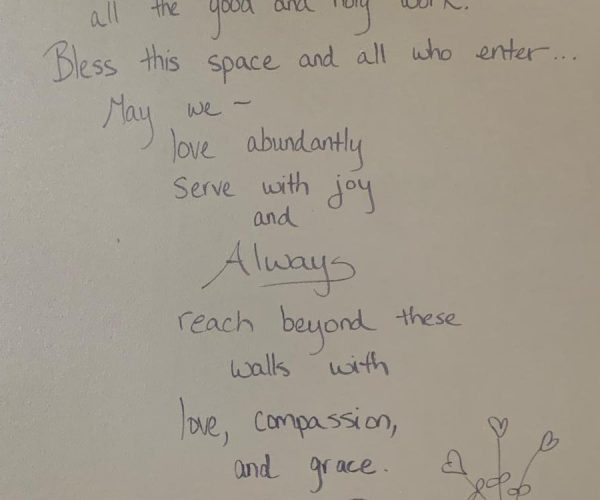 all the good and holy work.
Bless this space and all who enter...
May we –
love abundantly
serve with joy
and
Always
reach beyond these
walls with
love, compassion,
and grace.